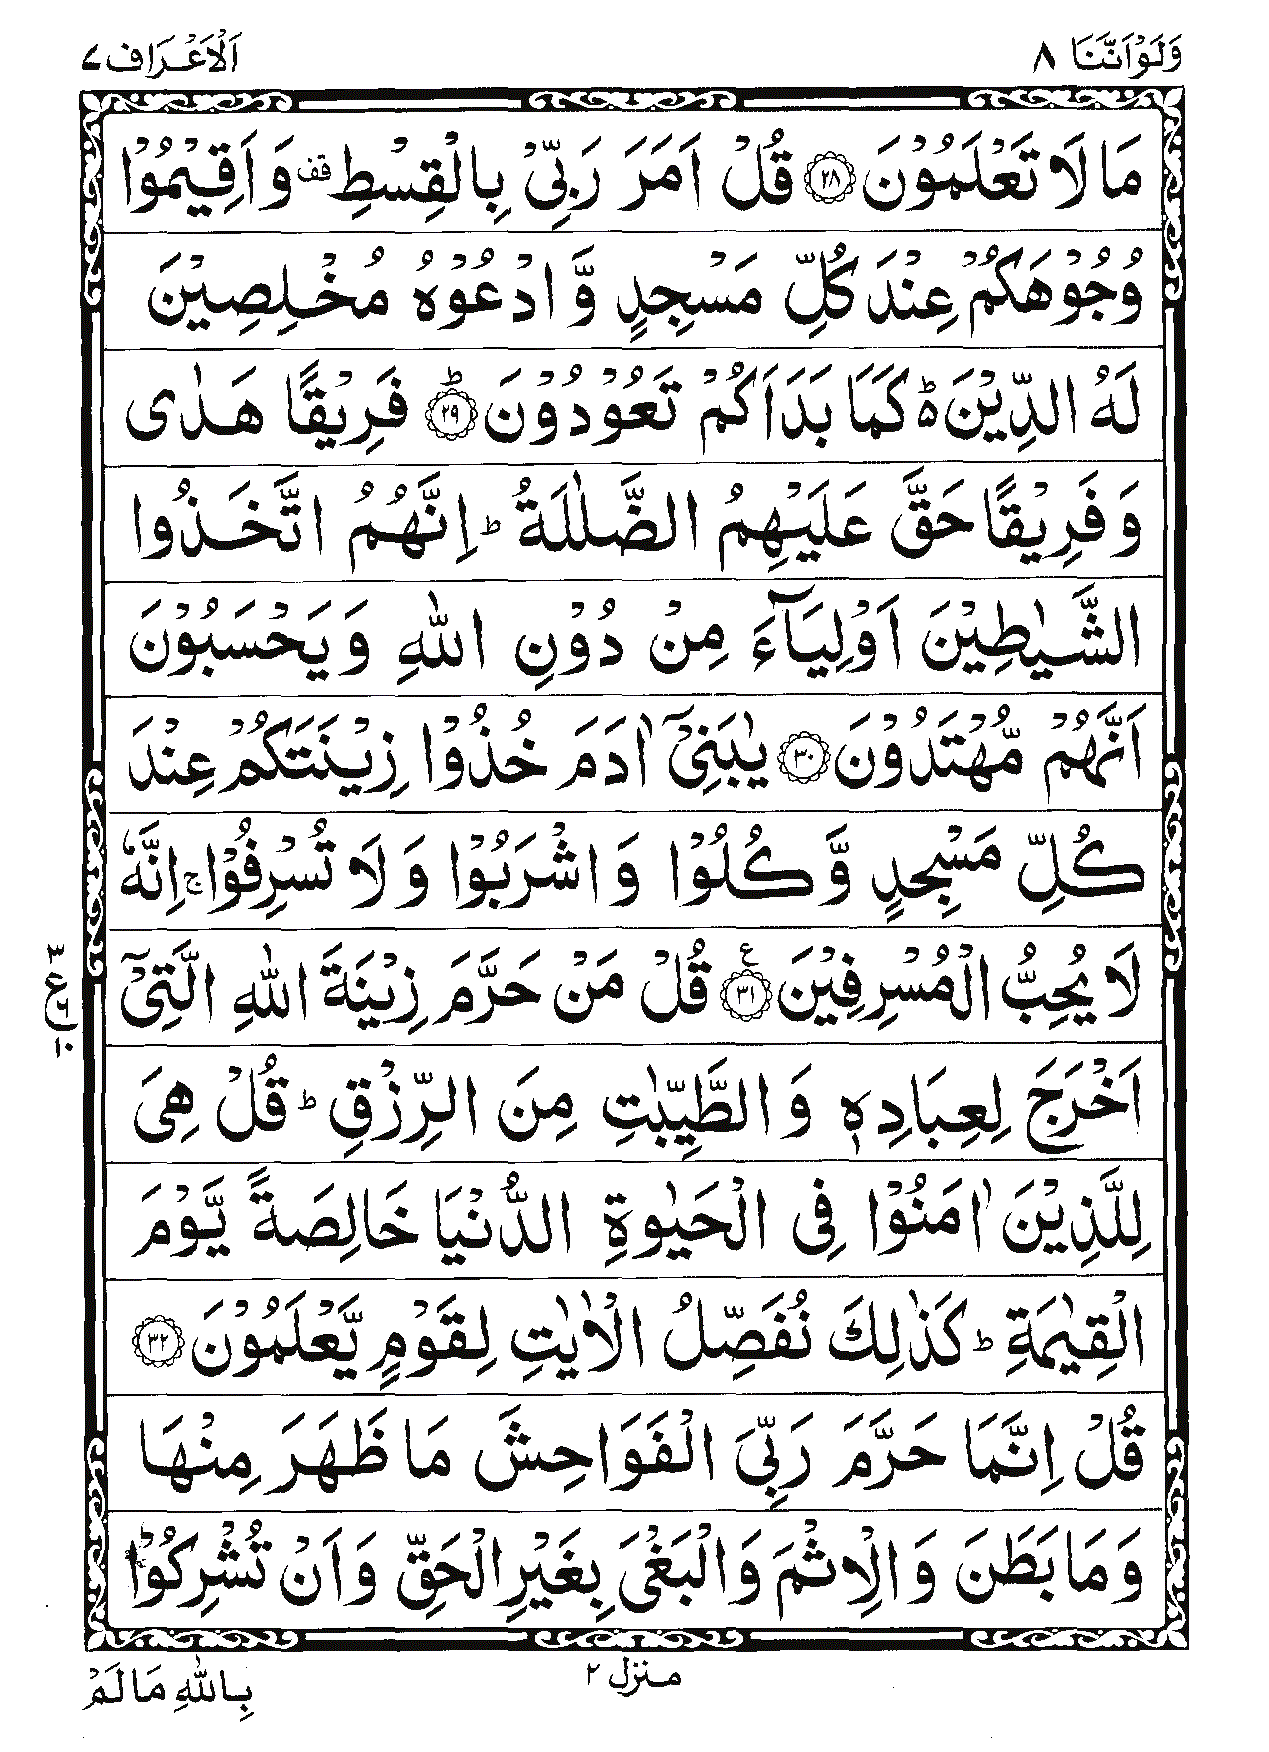 وَلَوْاَنَّنَا ٨
اَلْاَعْرَاف ٧
مَا لَا تَعْلَمُوْنَ ۝٢٨ قُلْ اَمَرَ رَبِّیْ بِالْقِسْطِ قف وَ اَقِیْمُوْا
وُجُوْهَكُمْ عِنْدَ كُلِّ مَسْجِدٍ وَّ ادْعُوْهُ مُخْلِصِیْنَ
لَهُ الدِّیْنَ ؕ۬ كَمَا بَدَاَكُمْ تَعُوْدُوْنَ ۝٢٩ؕ فَرِیْقًا هَدٰی
وَ فَرِیْقًا حَقَّ عَلَیْهِمُ الضَّلٰلَةُ ؕ اِنَّهُمُ اتَّخَذُوا
الشَّیٰطِیْنَ اَوْلِیَآءَ مِنْ دُوْنِ اللّٰهِ وَ یَحْسَبُوْنَ
اَنَّهُمْ مُّهْتَدُوْنَ ۝٣٠ یٰبَنِیْۤ اٰدَمَ خُذُوْا زِیْنَتَكُمْ عِنْدَ
كُلِّ مَسْجِدٍ وَّ كُلُوْا وَ اشْرَبُوْا وَ لَا تُسْرِفُوْا ۚ اِنَّهٗ
لَا یُحِبُّ الْمُسْرِفِیْنَ ۝٣١ ع قُلْ مَنْ حَرَّمَ زِیْنَةَ اللّٰهِ الَّتِیْۤ
٣
ع ٦
١٠
اَخْرَجَ لِعِبَادِهٖ وَ الطَّیِّبٰتِ مِنَ الرِّزْقِ ؕ قُلْ هِیَ
لِلَّذِیْنَ اٰمَنُوْا فِی الْحَیٰوةِ الدُّنْیَا خَالِصَةً یَّوْمَ
الْقِیٰمَةِ ؕ كَذٰلِكَ نُفَصِّلُ الْاٰیٰتِ لِقَوْمٍ یَّعْلَمُوْنَ ۝٣٢
قُلْ اِنَّمَا حَرَّمَ رَبِّیَ الْفَوَاحِشَ مَا ظَهَرَ مِنْهَا
وَ مَا بَطَنَ وَ الْاِثْمَ وَ الْبَغْیَ بِغَیْرِ الْحَقِّ وَ اَنْ تُشْرِكُوْا
منزل ٢
بِاللّٰهِ مَا لَمْ